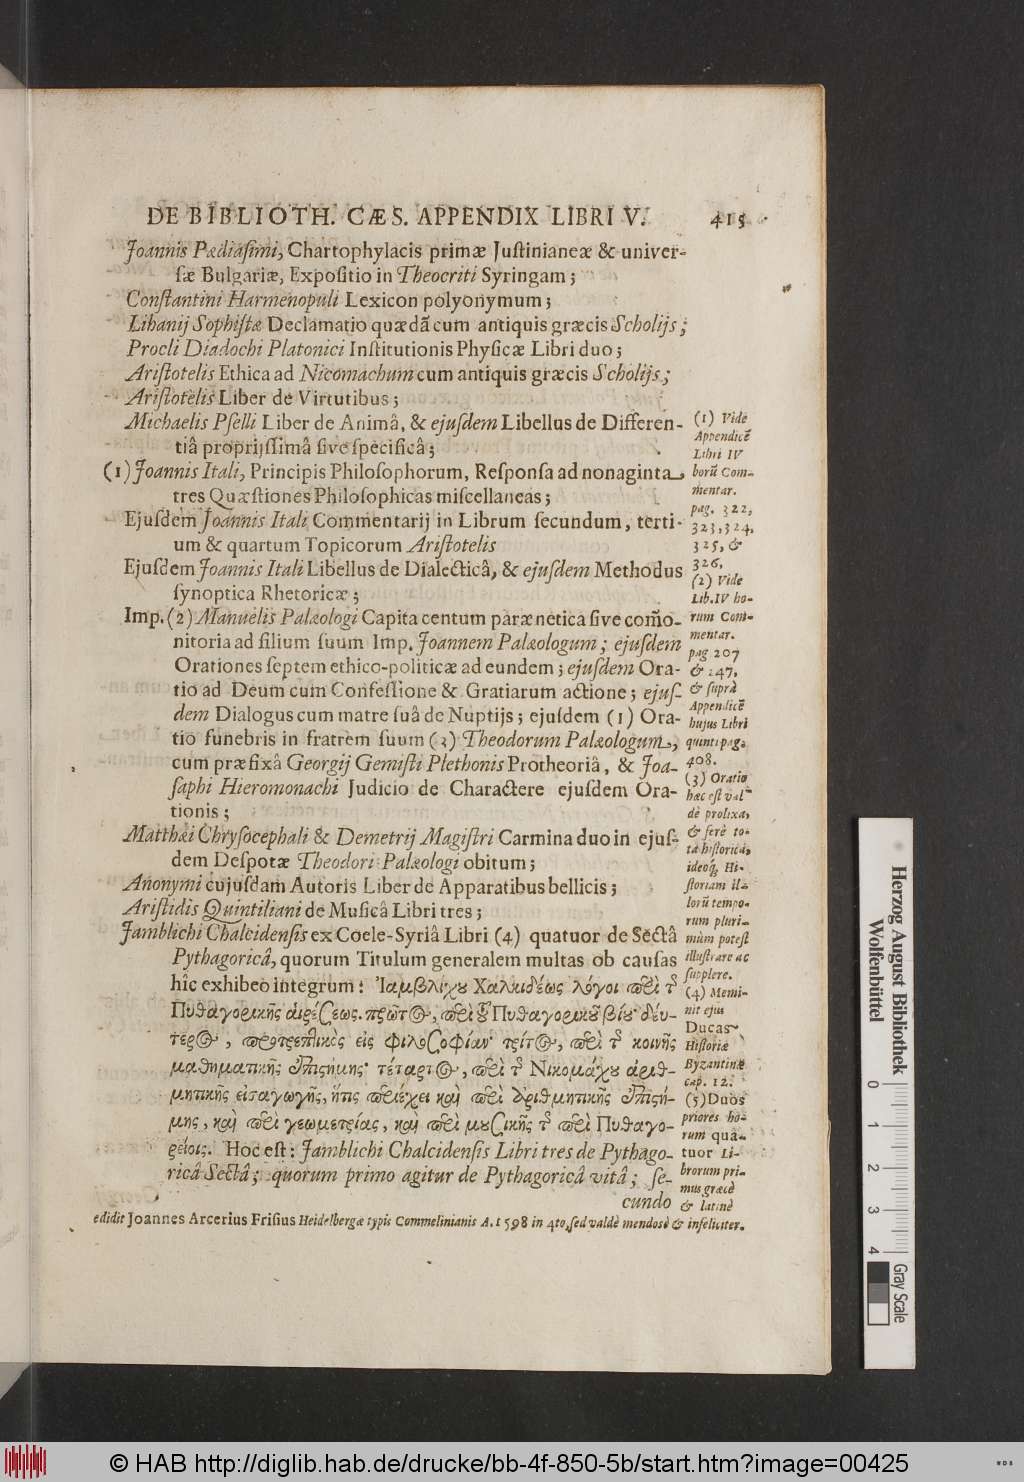 DE BIBLIOTH. CÆS. APPENDIX LIBRI V. 415
Joannis Pædiasimi, Chartophylacis primæ Justinianeæ & univer-
sæ Bulgariæ, Expositio in Theocriti Syringam;
Constantini Harmenopuli Lexicon polyonymum;
Libanij Sophistæ Declamatio quædã cum antiquis græcis Scholijs;
Procli Diadochi Platonici Institutionis Physicæ Libri duo;
Aristotelis Ethica ad Nicomachum cum antiquis græcis Scholijs;
Aristotelis Liber de Virtutibus;
Michaelis Pselli Liber de Animâ, & ejusdem Libellus de Differen-
tiâ proprijssimâ sive specificâ;
(1) Joannis Itali, Principis Philosophorum, Responsa ad nonaginta
tres Quæstiones Philosophicas miscellaneas;
Ejusdem Joannis Itali Commentarij in Librum secundum, terti-
um & quartum Topicorum Aristotelis
Ejusdem Joannis Itali Libellus de Dialecticâ, & ejusdem Methodus
synoptica Rhetoricæ;
Imp. (2) Manuelis Palæologi Capita centum parænetica sive com̃o-
nitoria ad filium suum Imp. Joannem Palæologum; ejusdem
Orationes septem ethico-politicæ ad eundem; ejusdem Ora-
tio ad Deum cum Confessione & Gratiarum actione; ejus-
dem Dialogus cum matre suâ de Nuptijs; ejusdem (1) Ora-
tio funebris in fratrem suum (3) Theodorum Palæologum,
cum præfixâ Georgij Gemisti Plethonis Protheoriâ, & Joa-
saphi Hieromonachi Judicio de Charactere ejusdem Ora-
tionis;
Matthæi Chrysocephali & Demetrij Magistri Carmina duo in ejus-
dem Despotæ Theodori Palæologi obitum;
Anonymi cujusdam Autoris Liber de Apparatibus bellicis;
Aristidis Quintiliani de Musicâ Libri tres;
Jamblichi Chalcidensis ex Coele-Syriâ Libri (4) quatuor de Sectâ
Pythagoricâ, quorum Titulum generalem multas ob causas
hîc exhibeo integrum: Ἰαμβλίχου Χαλκιδέως λόγοι περὶ τῆς
Πυθαγορικῆς αἱρέσεως. πρῶτος, περὶ τοῦ Πυθαγορικοῦ βίου· δέυ-
τερος, προτρεπτικὸς εἰς φιλοσοφίαν· τρίτος, περὶ τῆς κοινῆς
μαθηματικῆς ἐπιστήμης· τέταρτος, περὶ τῆς Νικομάχου ἀριθ-
μητικῆς εἰσαγωγῆς, ἥτις περιέχει καὶ περὶ ἀριθμητικῆς ἐπιστή-
μης, καὶ περὶ γεωμετρίας, καὶ περὶ μουσικῆς τῆς περὶ Πυθαγο-
ρείοις. Hoc est: Jamblichi Chalcidensis Libri tres de Pythago-
ricâ Sectâ; quorum primo agitur de Pythagoricâ vitâ; se-
cundo
(1) Vide
Appendicẽ
Libri IV
horũ Com-
mentar.
pag. 322,
323, 324,
325, &
326,
(2) Vide
Lib. IV ho-
rum Com-
mentar.
pag 207
& 247,
& suprà
Appendicẽ
hujus Libri
quinti pag.
408.
(3) Oratio
hæc est val-
dè prolixa,
& ferè to-
ta historica,
ideoq́, Hi-
storiam il-
lorũ tempo-
rum pluri-
mùm potest
illustrare ac
supplere.
(4) Memi-
nit ejus
Ducas
Historiæ
Byzantinæ
cap. 12.
(5) Duos
priores ho-
rum qua-
tuor Li-
brorum pri-
mus græcè
& latinè
edidit Joannes Arcerius Frisius Heidelbergæ typis Commelinianis A. 1598 in 4to, sed valdè mendosè & infeliciter.
Herzog August Bibliothek
Wolfenbüttel
0 1 2 3 4
Gray Scale
© HAB http://diglib.hab.de/drucke/bb-4f-850-5b/start.htm?image=00425